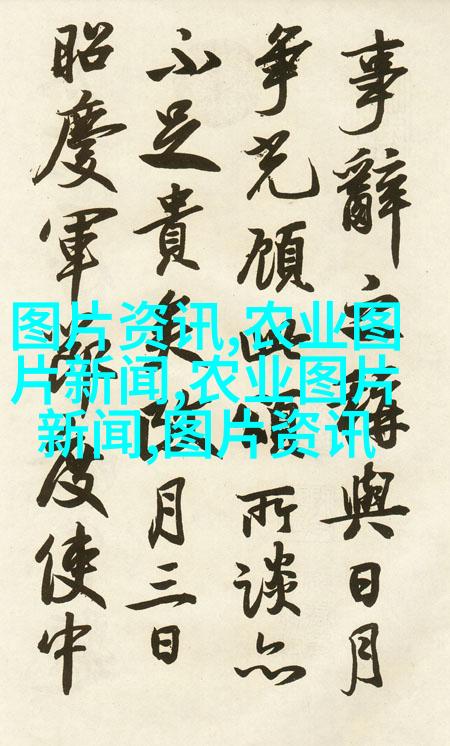 事辭與日月
爭光顧此所談亦
不足貴矣月三日
昭慶軍節度使中
图片资讯,农业图
片新闻,农业图片
新闻,图片资讯